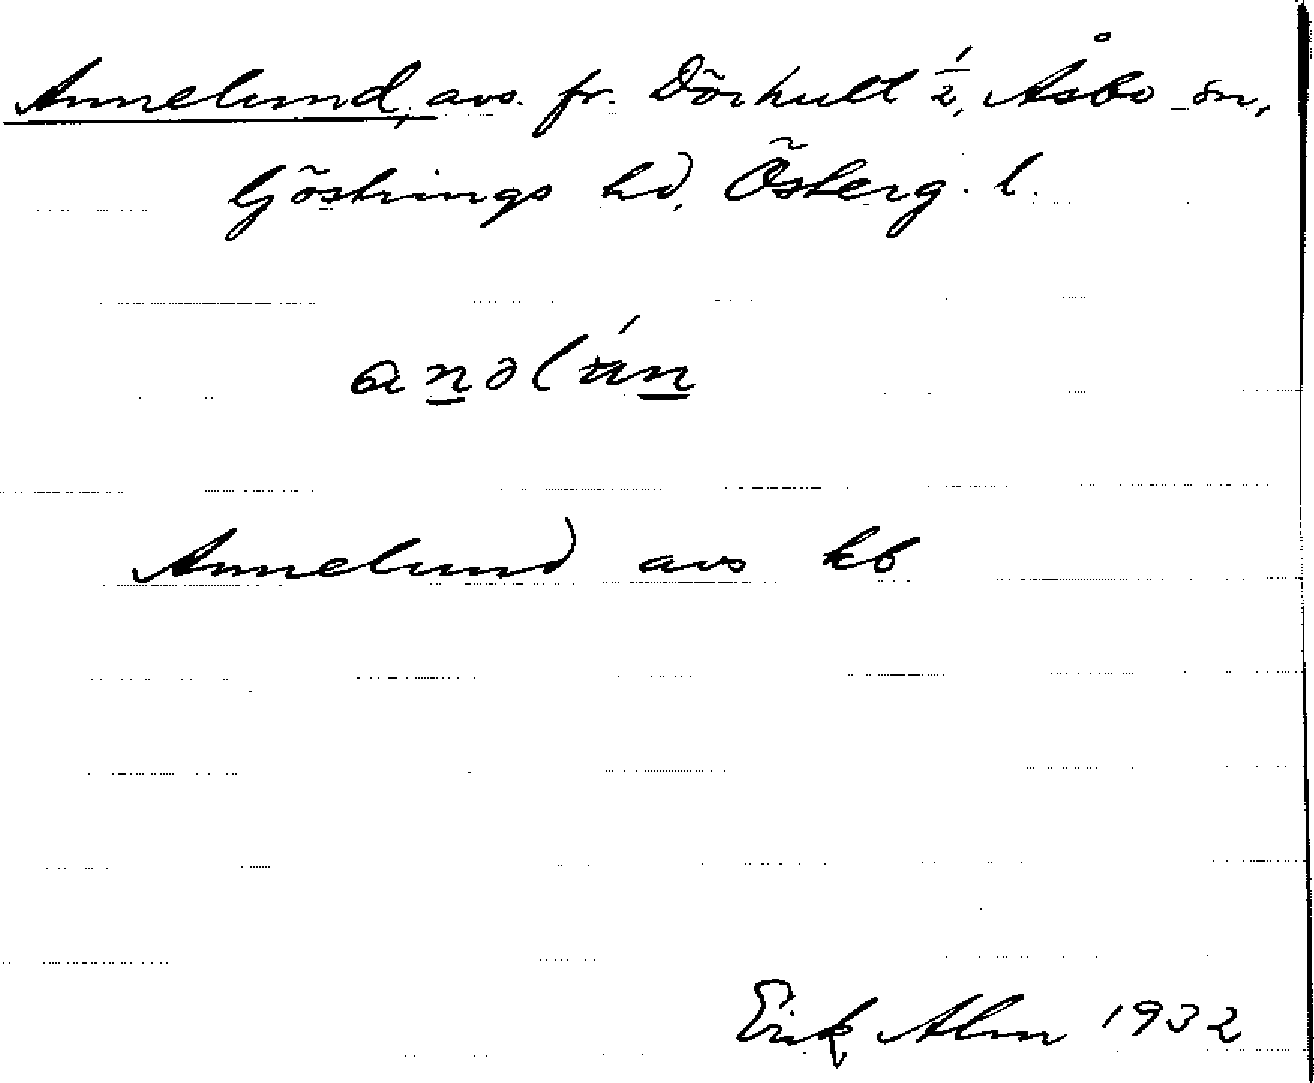 Annelund, avs. fr. Dörhult 1/2, Åsbo sn,
Göstrings hd, Österg. l.
Annelund avs kb
Erik Alm 1932